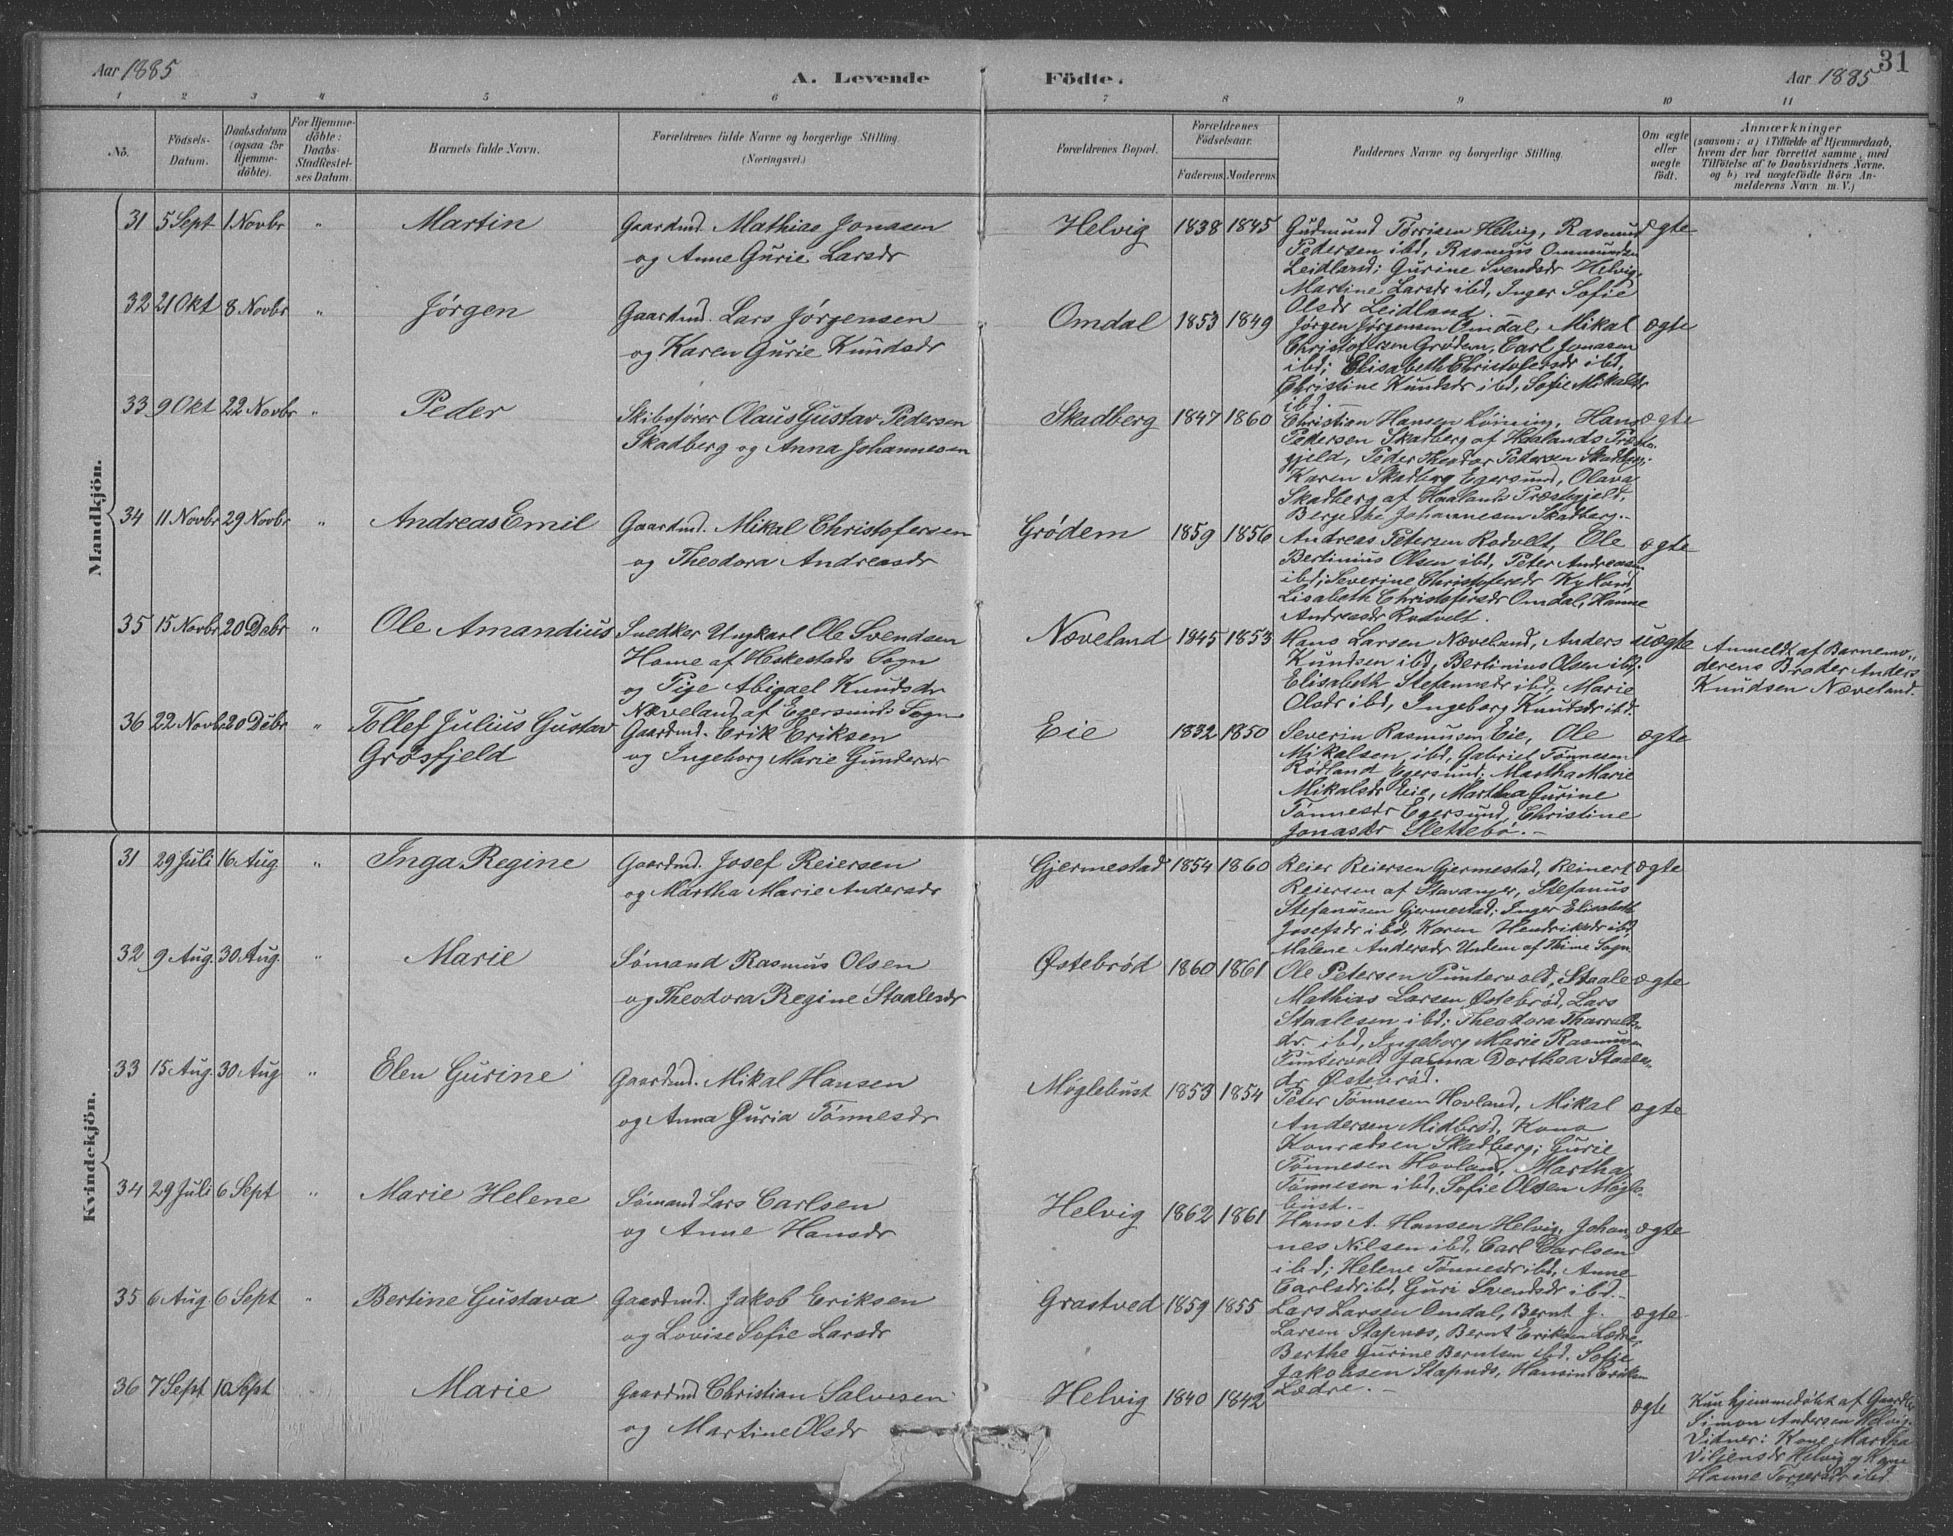 31
Aar 1885
A. Levende Födte.
Aar 1885
1 2 3 4 5 6 7 8 9 10 11
No.
Födsels-Datum.
Daabsdatum (ogsaa for Hjemmedöbte).
For Hjemmedöbte: Daabs-Stadfæstelses Datum.
Barnets fulde Navn.
Forældrenes fulde Navne og borgerlige Stilling.
(Næringsvei.)
Forældrenes Bopæl.
Forældrenes Födselsaar.
Faderens. Moderens.
Faddernes Navne og borgerlige Stilling.
Om ægte eller uægte födt.
Anmærkninger
(saasom: a) i Tilfælde af Hjemmedaab,
hvem der har forrettet samme, med
Tilföielse af to Daabsvidners Navne.
og b) ved uægtefödte Börn An-
melderens Navn m. V.)
Mandkjön.
31 5 Sept 1 Novbr " Martin
Gaardmd. Mathias Jonasen
og Anne Gurie Larsdr
Helvig 1838 1845
Gudmund Tørrisen Helvig, Rasmus
Pedersen ibd, Rasmus Ommundsen
Leidland; Gurine Svendsdr Helvig,
Martine Larsdr ibd, Inger Sofie
Olsdr Leidland.
ægte
32 21 Okt 8 Novbr " Jørgen
Gaardmd. Lars Jørgensen
og Karen Gurie Knudsdr
Omdal 1853 1849
Jørgen Jørgensen Omdal, Mikal
Christofersen Grødem, Carl Jonasen
ibd; Elisabeth Christofersdr ibd,
Christine Knudsdr ibd, Sofie Mikalsdr
ibd.
ægte
33 9 Okt 22 Novbr " Peder
Skibsfører Olaus Gustav Pedersen
Skadberg og Anna Johannesen
Skadberg 1847 1860
Christian Hansen Løining, Hans
Pedersen Skadberg af Haalands Præste-
gjeld, Peder Theodor Pedersen Skadberg;
Karen Skadberg Egersund, Olava
Skadberg af Haalands Præstegjeld,
Bergethe Johannesen Skadberg.
ægte
34 11 Novbr 29 Novbr " Andreas Emil
Gaardmd. Mikal Christofersen
og Theodora Andreasdr
Grødem 1859 1856
Andreas Petersen Rodvelt, Ole
Bertinius Olsen ibd, Peter Andreasen
ibd; Severine Christofersdr Kylland,
Lisabeth Christofersdr Omdal, Hanne
Andreasdr Rodvelt.
ægte
35 15 Novbr 20 Debr " Ole Amandius
Snedker Ungkarl Ole Svendsen
Home af Heskestads Sogn
og Pige Abigael Knudsdr
Næveland af Egersunds Sogn
Næveland 1845 1853
Hans Larsen Næveland, Anders
Knudsen ibd, Bertinius Olsen ibd;
Elisabeth Stefansdr ibd, Marie
Olsdr ibd, Ingeborg Knutsdr ibd.
uægte
Anmeldt af Barnemo-
derens Broder Anders
Knudsen Næveland.
36 22 Novb 20 Debr " Tollef Julius Gustav
Grøsfjeld
Gaardmd. Erik Eriksen
og Ingeborg Marie Gundersdr
Eie 1832 1850
Severin Rasmusen Eie, Ole
Mikalsen ibd, Gabriel Tønnesen
Rødland Egersund; Martha Marie
Mikalsdr Eie, Martha Gurine
Tønnesdr Egersund, Christine
Jonasdr Slettebø.
ægte
Kvindekjön.
31 29 Juli 16 Aug " Inga Regine
Gaardmd. Josef Reiersen
og Martha Marie Andersdr
Gjermestad 1854 1860
Reier Reiersen Gjermestad, Reinert
Reiersen af Stavanger, Stefanus
Stefanusen Gjermestad; Inger Elisabeth
Josefsdr ibd, Karen Hendriksdr ibd,
Malene Andersdr Undem af Thime Sogn
ægte
32 9 Aug. 30 Aug. " Marie
Sømand Rasmus Olsen
og Theodora Regine Staalesdr
Østebrød 1860 1861
Ole Petersen Puntervold, Staale
Mathias Larsen Østebrød, Lars
Staalesen ibd; Theodora Tharalds-
dr. ibd, Ingeborg Marie Rasmusen
Puntervold Janna Dorthea Staales-
dr Østebrød.
ægte
33 15 Aug. 30 Aug " Elen Gurine
Gaardmd. Mikal Hansen
og Anna Guria Tønnesdr
Møglebust 1853 1854
Peter Tønnesen Hovland, Mikal
Andersen Midbrød, Kono
Konradsen Skadberg; Gurie
Tønnesen Hovland, Martha
Tønnesen ibd, Sofie Olsen Møgle-
bust.
ægte
34 29 Juli 6 Sept " Marie Helene
Sømand Lars Carlsen
og Anne Hansdr
Helvig 1862 1861
Hans A. Hansen Helvig, Johan-
nes Nilsen ibd, Carl Carlsen
ibd; Helene Tønnesdr ibd, Anne
Carlsdr ibd, Guri Svendsdr ibd.
ægte
35 6 Aug. 6 Sept " Bertine Gustava
Gaardmd. Jakob Eriksen
og Lovise Sofie Larsdr
Grastved 1859 1855
Lars Larsen Omdal, Bernt J.
Larsen Stapnes, Bernt Eriksen Lædre,
Berthe Gurine Berntsen ibd. Sofie
Jakobsen Stapnes, Hansine Eriksen
Lædre.
ægte
36 7 Sept 10 Sept Marie
Gaardmd Christian Salvesen
og Martine Olsdr
Helvig 1840 1842
ægte
Kun hjemmedøbt af Gaardbr
Simon Andersen Helvig.
Vidner: Kone Martha
Viljensdr Helvig og Kone
Hanne Torgersdr ibd.